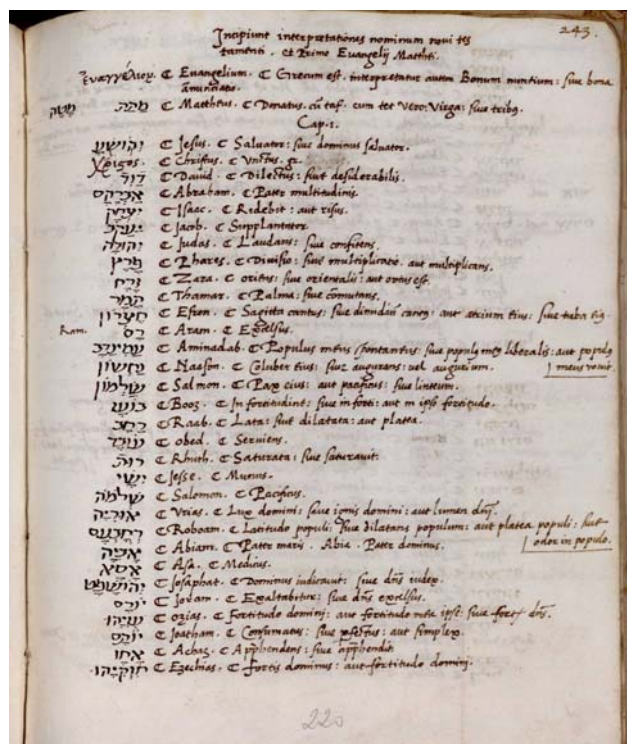 243.
Incipiunt interpretationes nominum novi tes
tamenti. et Primo Evangelij Matthei.
Ἐυαγγέλιον. C Euangelium. C Grecum est. interpretatur autem Bonum nuntium: siue bona
annunciatio.
C Mattheus. C Donatus. cum tet vero: Virga: siue tribus.
Cap. 1.
C Jesus. C Saluator: siue dominus saluator.
C Christus. C Unctus. gr.
דָוִד C Dauid. C Dilectus: siue desiderabilis.
C Abraham. C Pater multitudinis.
יִצְחָק C Isaac. C Ridebit: aut risus.
יַעֲקֹב C Jacob. C Supplantator.
יְהוּדָה C Judas. C Laudans: siue confitens.
פֶּרֶץ C Phares. C Diuisio: siue multiplicatio. aut multiplicans.
זֶרַח C Zara. C oritur: siue orientalis: aut ortus est.
תָּמָר C Thamar. C Palma: siue comutans.
חֶצְרוֹן C Esron. C Sagitta cantus: siue aut atrium eius: siue tuba
Ram. רָם C Aram. C Excelsus.
עַמִּינָדָב C Aminadab. C Populus meus siue populus meus liberalis: aut populus
meus vouit.
נַחְשׁוֹן C Naason. C Coluber eius: siue augurans: vel augurium.
שַׂלְמוֹן C Salmon. C Pax eius: aut pacificus: siue linteum.
בּוֹעַז C Booz. C In fortitudine: siue in forti: aut in ipso fortitudo.
רָחָב C Raab. C Lata: siue dilatata: aut platea.
עוֹבֵד C obed. C Seruiens.
רוּת C Rhuth. C Saturata: siue saturauit.
יִשַׁי C Jesse. C Munus.
שְׁלֹמֹה C Salomon. C Pacificus.
אוּרִיָּה C Vrias. C Lux domini: siue ignis domini: aut lumen dni.
רְחַבְעָם C Roboam. C Latitudo populi: siue dilatans populum: aut platea populi: siue
odor in populo.
אֲבִיָּה C Abiam. C Pater maris. Abia. Pater dominus.
אָסָא C Asa. C Medicus.
יְהוֹשָׁפָט C Josaphat. C Dominus iudicauit: siue dns iudex.
יוֹרָם C Joram. C Exaltabitur: siue dns excelsus.
C ozias. C Fortitudo domini: aut fortitudo mea ipse: siue dns.
יוֹתָם C Joatham. C Consumatus: siue perfectus: aut simplex.
C Achaz. C Apprehendens: siue apprehendit.
חִזְקִיָּהוּ C Ezechias. C Fortis dominus: aut fortitudo domini.
220